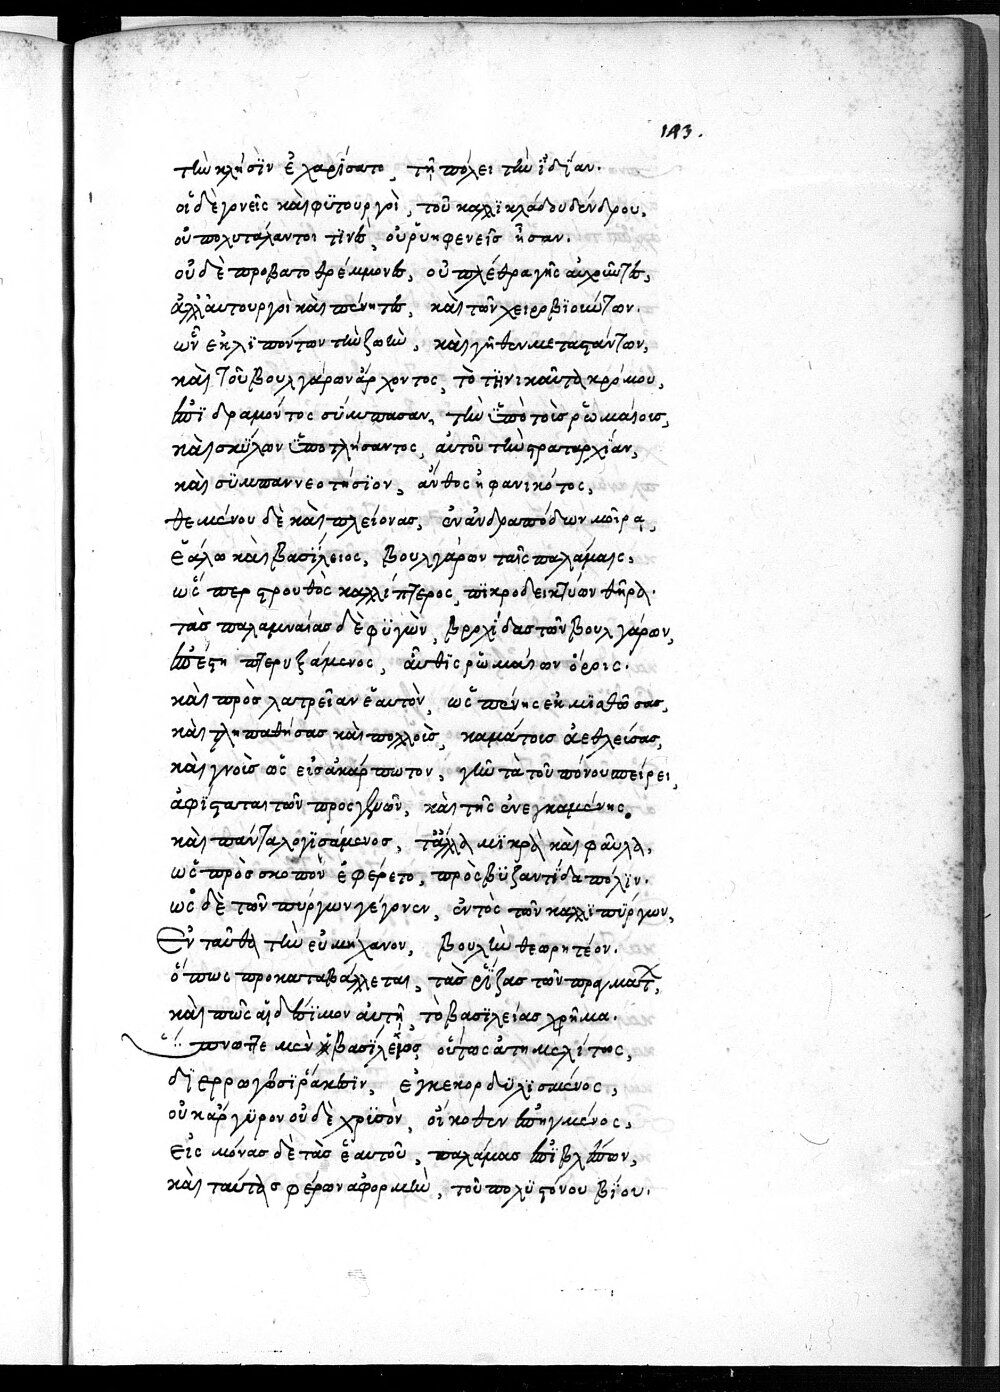 193.
τὴν κλῆσϊν ἐχαρίσατο, τῇ πόλει τὴν ἰδίαν.
οἱ δὲ γονεῖς καὶ φϋτουργοὶ, τοῦ καλλϊκλάδου δένδρου,
οὐ πολυτάλαντοι τϊνὲς, οὐ ῥυηφενεῖς ἦσαν.
οὐδὲ προβατοθρέμμονες, οὐ πλέθρα γῆς αὐχοῦντες,
ἀλλ' αὐτουργοὶ καὶ πένητες, καὶ τῶν χειροβϊούντων.
ὧν ἐκλϊπόντων τὴν ζωὴν, καὶ γῆθεν μεταστάντων,
καὶ τοῦ Βουλγάρων ἄρχοντος, τὸ τηνικαῦτα κρούμου,
ἐπϊδραμόντος σύμπασαν, τὴν ὑπὸ τοῖς ῥωμαίοις,
καὶ σκύλων ὑποπλήσαντος, αὐτοῦ τὴν στραταρχίαν,
καὶ σύμπαν νεοτήσϊον, ἄνθος ἠφανικότος,
θεμένου δὲ καὶ πλείονας, ἐν ἀνδραπόδων μοίρᾳ,
ἑάλω καὶ Βασίλειος, Βουλγάρων ταῖς παλάμαις,
ὥσπερ στρουθὸς καλλίπτερος, πϊκρο δεικτύων θήρα.
τὰς παλαμναίας δὲ φϋγὼν, βροχίδας τῶν Βουλγάρων,
ἐπέστη πτερυξάμενος, αὖθϊς ῥωμαίων ὅροις.
καὶ πρὸς λατρείαν ἑαυτὸν, ὡς πένης ἐκμϊσθώσας,
καὶ τληπαθήσας καὶ πολλοῖς, καμάτοις ἀεθλεύσας,
καὶ γνοὺς ὡς εἰς ἀκάρπωτον, γῆν τὰ τοῦ πόνου σπείρει,
ἀφΐσταται τῶν προσγενῶν, καὶ τῆς ἐνεγκαμένης.
καὶ πάντα λογϊσάμενος, τἆλλα μϊκρὰ καὶ φαῦλα,
ὡς πρὸς σκοπὸν ἐφέρετο, πρὸς Βϋζαντίδα πόλϊν.
ὡς δὲ τῶν πύργων γέγονεν, ἐντὸς τῶν καλλϊπύργων,
Ἐνταῦθα τὴν εὐμήχανον, Βουλὴν θεωρητέον.
ὅπως προκαταβάλλεται, τὰς ῥίζας τῶν πραγμάτων,
καὶ πῶς ἀοίδϊμον αὐτῇ, τὸ βασϊλείας χρῆμα.
ὕπνωττε μὲν ὁ Βασίλειος οὕτως ἀτημελήτης,
δϊερρωγόσϊ ῥάκεσϊν, ἐγκεκορδυλϊσμένος,
οὐκ ἄργϋρον οὐδὲ χρϋσὸν, οἴκοθεν ἐπηγμένος,
εἰς μόνας δὲ τὰς ἑαυτοῦ, παλάμας ἐπϊβλέπων,
καὶ ταύτας φέρων ἀφορμὴν, τοῦ πολϋστόνου βίου.